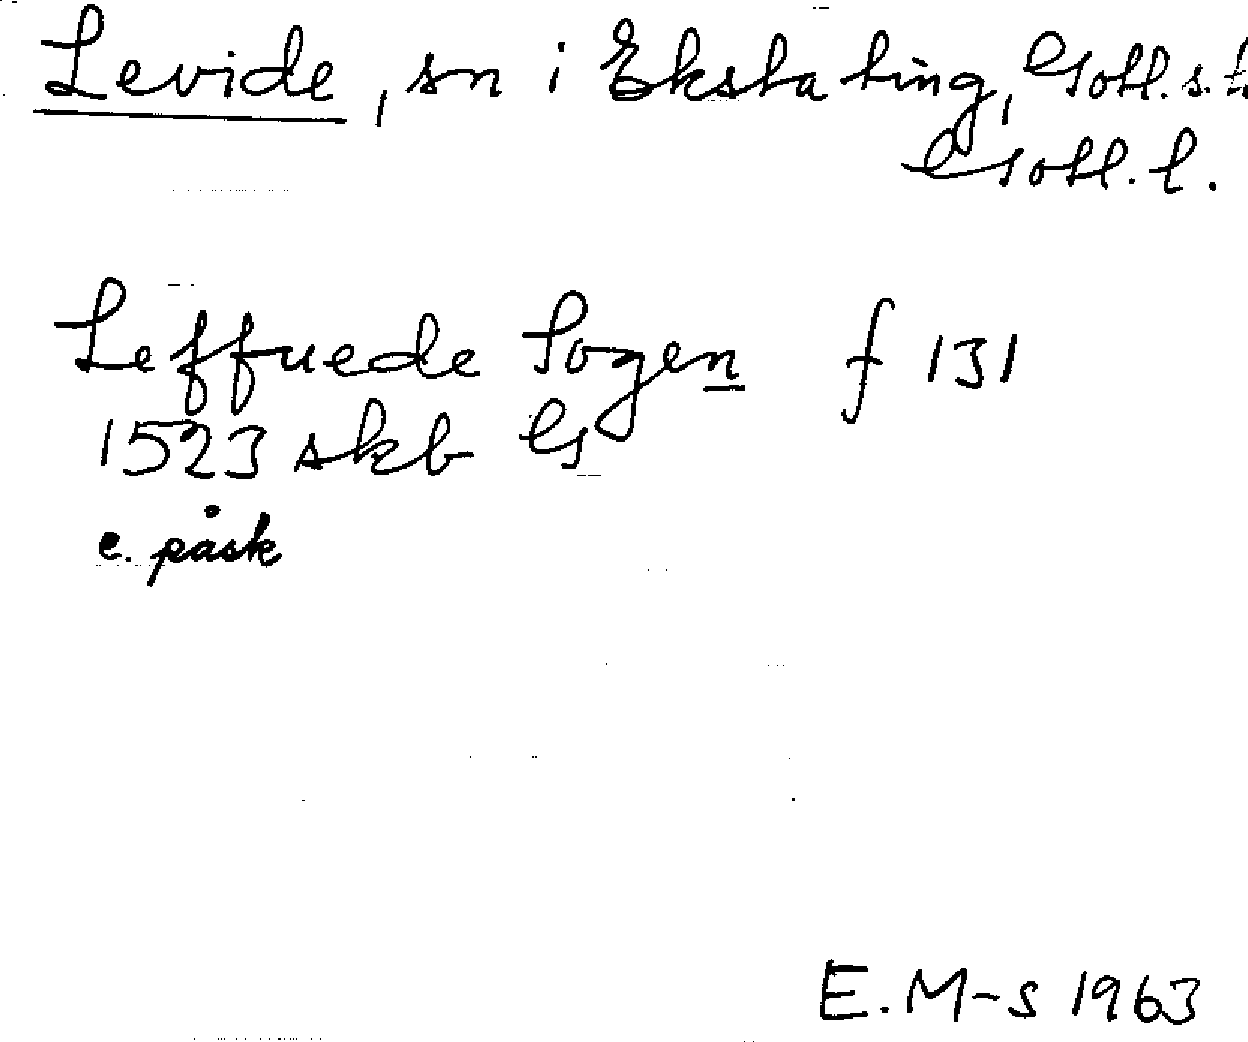 Levide, sn i Eksta ting, Gotl. s. h
Gotl. l.
Leffuede Sogen f 131
1523 skb G
e. påsk
E. M-s 1963